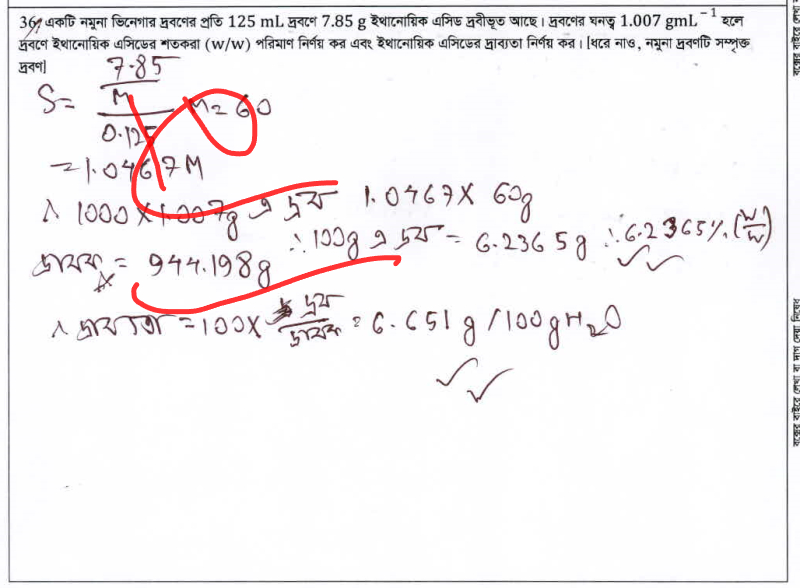 36. একটি নমুনা ভিনেগার দ্রবণের প্রতি 125 mL দ্রবণে 7.85 g ইথানোয়িক এসিড দ্রবীভূত আছে। দ্রবণের ঘনত্ব 1.007 gmL⁻¹ হলে
দ্রবণে ইথানোয়িক এসিডের শতকরা (w/w) পরিমাণ নির্ণয় কর এবং ইথানোয়িক এসিডের দ্রাব্যতা নির্ণয় কর। [ধরে নাও, নমুনা দ্রবণটি সম্পৃক্ত
দ্রবণ]
S = 7.85/M / 0.125 M = 60
= 1.0467 M
∴ 1000 × 1.007g এ দ্রব 1.0467 × 60g
∴ 100g এ দ্রব = 6.2365g ∴ 6.2365% (w/w)
দ্রাবক = 944.198g
∴ দ্রাব্যতা = 100 × দ্রব/দ্রাবক = 6.651 g/100g H₂O